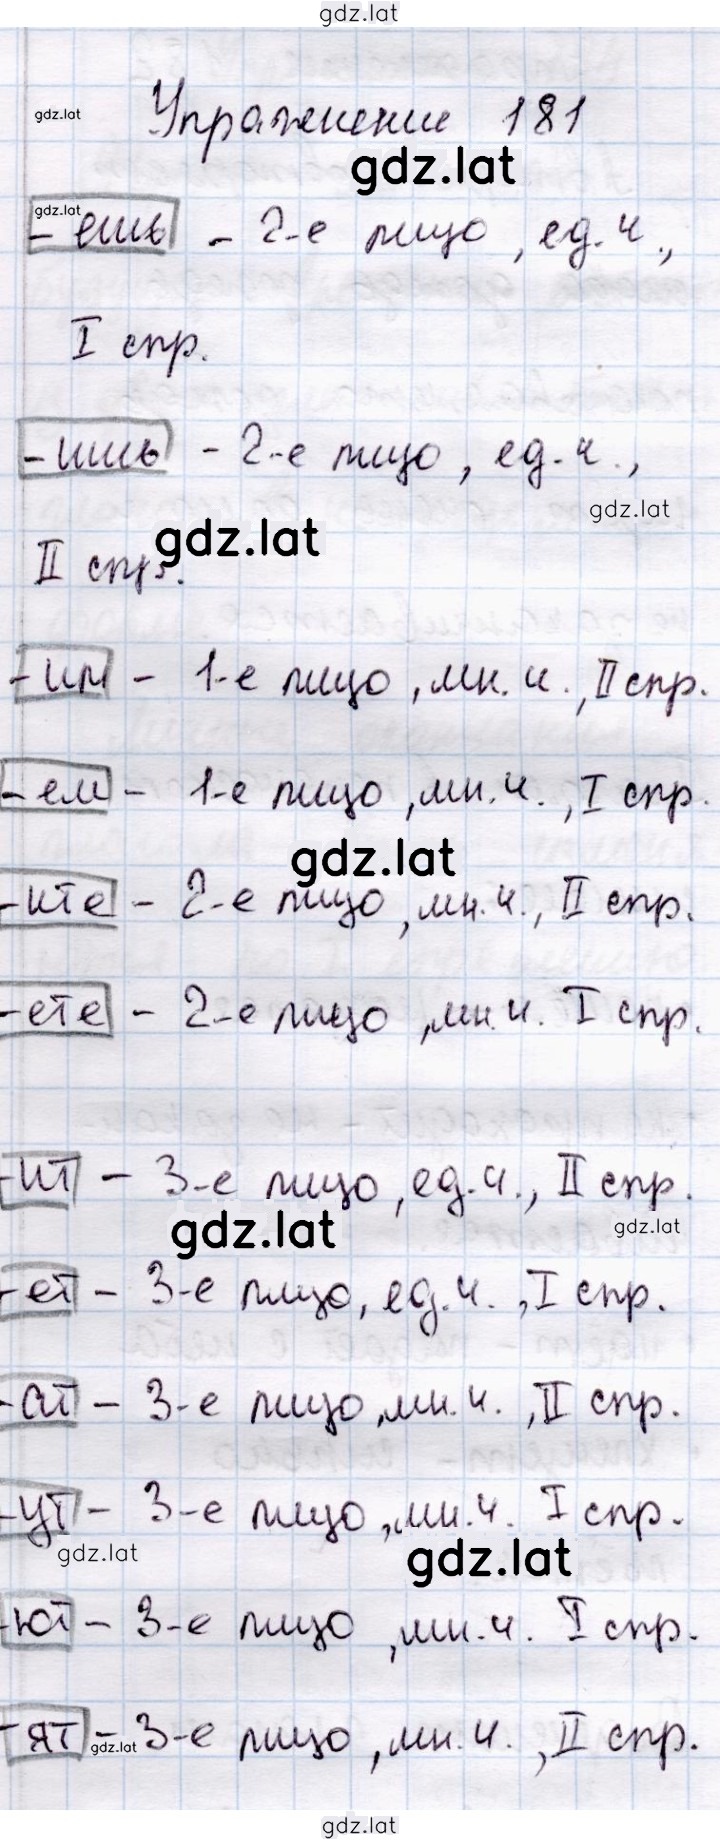 gdz.lat
gdz.lat
Упражнение 181
gdz.lat
gdz.lat
-ешь - 2-е лицо, ед.ч.,
I спр.
-ишь - 2-е лицо, ед.ч.,
gdz.lat
gdz.lat
II спр.
-им - 1-е лицо, мн.ч., II спр.
-ем - 1-е лицо, мн.ч., I спр.
gdz.lat
-ите - 2-е лицо, мн.ч., II спр.
-ете - 2-е лицо, мн.ч. I спр.
-ит - 3-е лицо, ед.ч., II спр.
gdz.lat
gdz.lat
-ет - 3-е лицо, ед.ч., I спр.
-ат - 3-е лицо, мн.ч., II спр.
-ут - 3-е лицо, мн.ч. I спр.
gdz.lat
gdz.lat
-ют - 3-е лицо, мн.ч. I спр.
-ят - 3-е лицо, мн.ч., II спр.
gdz.lat
gdz.lat